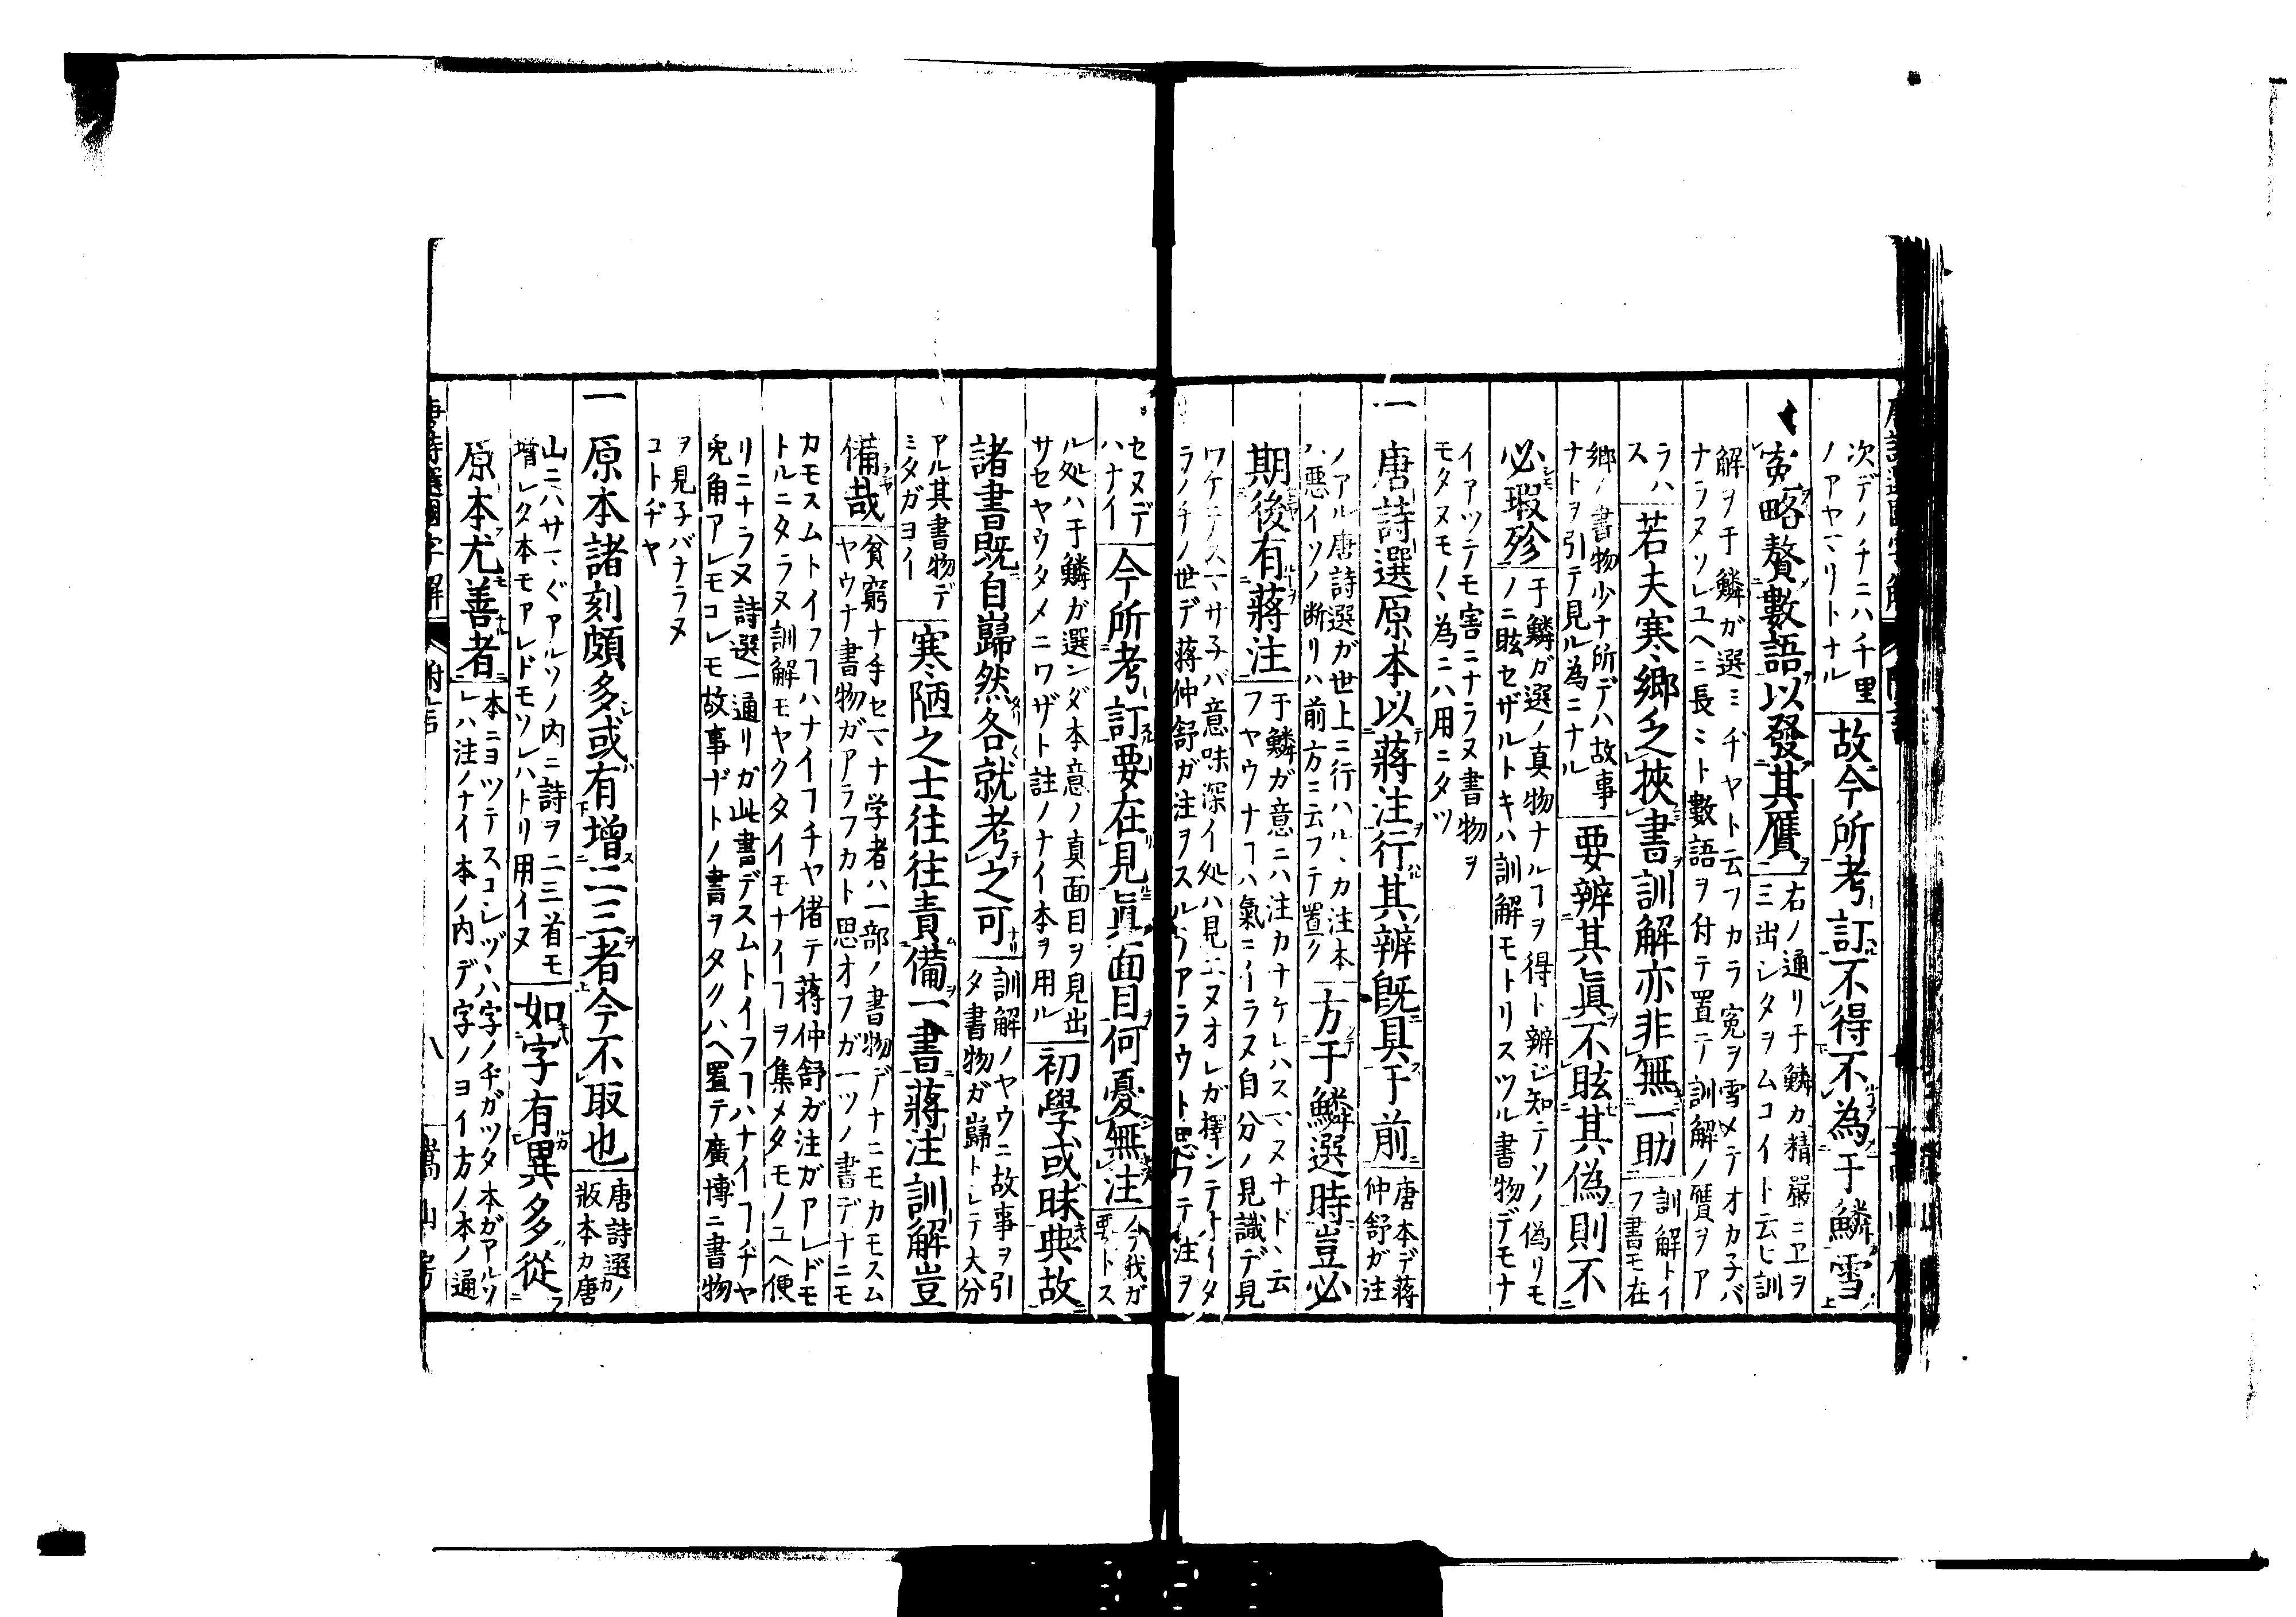 次デノチニハ千里
ノアヤマリトナル
故今所考訂不得不為于鱗雪
寃略贅數語以發其贋
右ノ通リ于鱗カ精嚴ニヱヲ
三出シタヲムコイト云ヒ訓
解ヲ于鱗ガ選ミヂヤト云フカラ寃ヲ雪メテオカ子バ
ナラヌソレユヘニ長ミト數語ヲ付テ置テ訓解ノ贋ヲア
ラハ
ス
若夫寒鄉乏挾書訓解亦非無一助
訓解トイ
フ書モ在
鄉ノ書物少ナ所デハ故事
ナトヲ引テ見ル為ニナル
要辨其眞不眩其偽則不
必瑕殄
于鱗ガ選ノ真物ナルヿヲ得ト辨ジ知テソノ偽リモ
ノニ眩セザルトキハ訓解モトリスツル書物デモナ
イアツテモ害ニナラヌ書物ヲ
モタヌモノヽ為ニハ用ニタツ
一唐詩選原本以蔣注行其辨既具于前
唐本デ蔣
仲舒ガ注
ノアル唐詩選ガ世上ニ行ハルヽカ注本
ハ悪イソノ断リハ前方ニ云フテ置ク
方于鱗選時豈必
期後有蔣注
于鱗ガ意ニハ注カナケレハスマヌナドヽ云
フヤウナヿハ氣ニイラヌ自分ノ見識デ見
ワケテスマサ子バ意味深イ処ハ見エヌオレガ擇ンテオイタ
ラノチノ世デ蔣仲舒ガ注ヲスルヿアラウト思ワテ注ヲ
セヌデ
ハナイ
今所考訂要在見眞面目何憂無注
今我ガ
要トス
ル処ハ于鱗ガ選ンダ本意ノ真面目ヲ見出
サセヤウタメニワザト註ノナイ本ヲ用ル
初學或昧典故
諸書既自巋然各就考之可
訓解ノヤウニ故事ヲ引
タ書物ガ巋トシテ大分
アル其書物デ
ミタガヨイ
寒陋之士往往責備一書蔣注訓解豈
備哉
貧窮ナ手セマナ学者ハ一部ノ書物デナニモカモスム
ヤウナ書物ガアラフカト思オフガ一ツノ書デナニモ
カモスムトイフヿハナイヿヂヤ偖テ蔣仲舒ガ注ガアレドモ
トルニタラヌ訓解モヤクタイモナイヿヲ集メタモノユヘ便
リニナラヌ詩選一通リガ此書デスムトイフヿハナイヿヂヤ
兔角アレモコレモ故事ナドノ書ヲタクハヘ置テ廣博ニ書物
ヲ見子バナラヌ
コトヂヤ
一原本諸刻頗多或有增二三者今不取也
唐詩選ノ
版本カ唐
山ニハサマ〲アルソノ内ニ詩ヲ二三首モ
增レタ本モアレドモソレハトリ用イヌ
如字有異多從
原本尤善者
本ニヨツテスコシヅヽハ字ノチガツタ本ガアルソ
レハ注ノナイ本ノ内デ字ノヨイ方ノ本ノ通
唐詩選國字解 附言 八 嵩山房